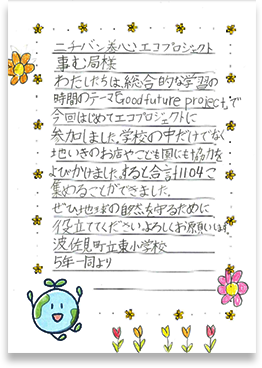 ニチバン巻心エコプロジェクト
事む局様
わたしたちは、総合的な学習の
時間のテーマ「Good future project」で
今回はじめてエコプロジェクトに
参加しました。学校の中だけでなく
地いきのお店やこども園にも協力を
よびかけました。すると合計1104こ
集めることができました。
ぜひ地球の自然を守るために
役立ててください。よろしくお願いします。
波佐見町立東小学校
5年一同より